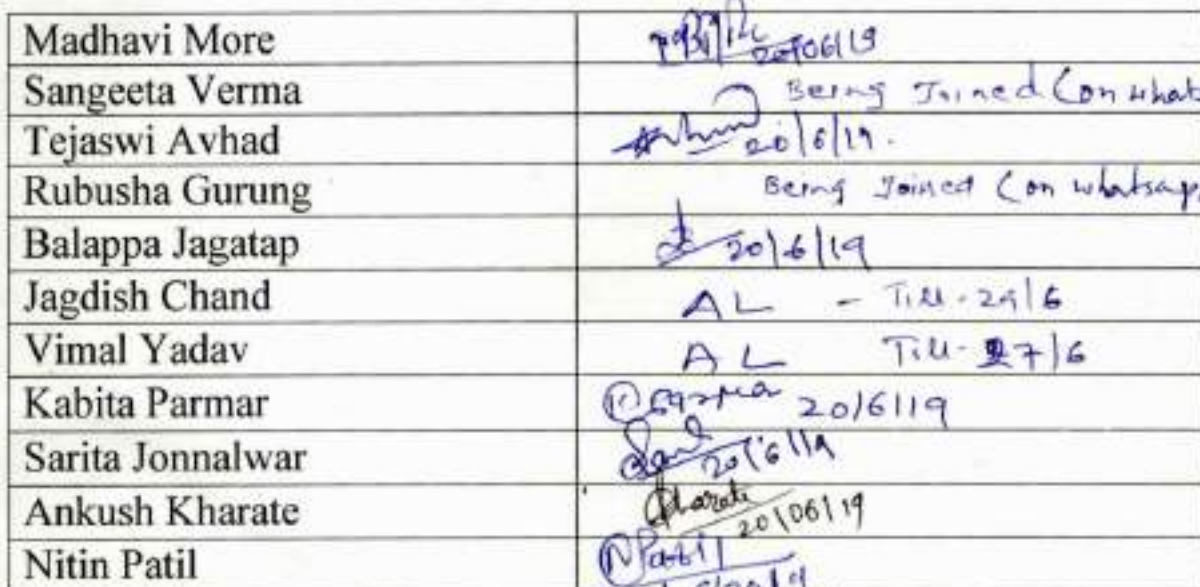 Madhavi More 20/06/19
Sangeeta Verma Being Joined (on what
Tejaswi Avhad 20/6/19.
Rubusha Gurung Being Joined (on whatsap
Balappa Jagatap 20/6/19
Jagdish Chand AL - Till - 29/6
Vimal Yadav AL Till - 27/6
Kabita Parmar 20/6/19
Sarita Jonnalwar 20/6/19
Ankush Kharate Kharate 20/06/19
Nitin Patil NPatil